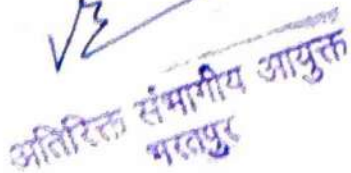 अतिरिक्त संभागीय आयुक्त
भरतपुर